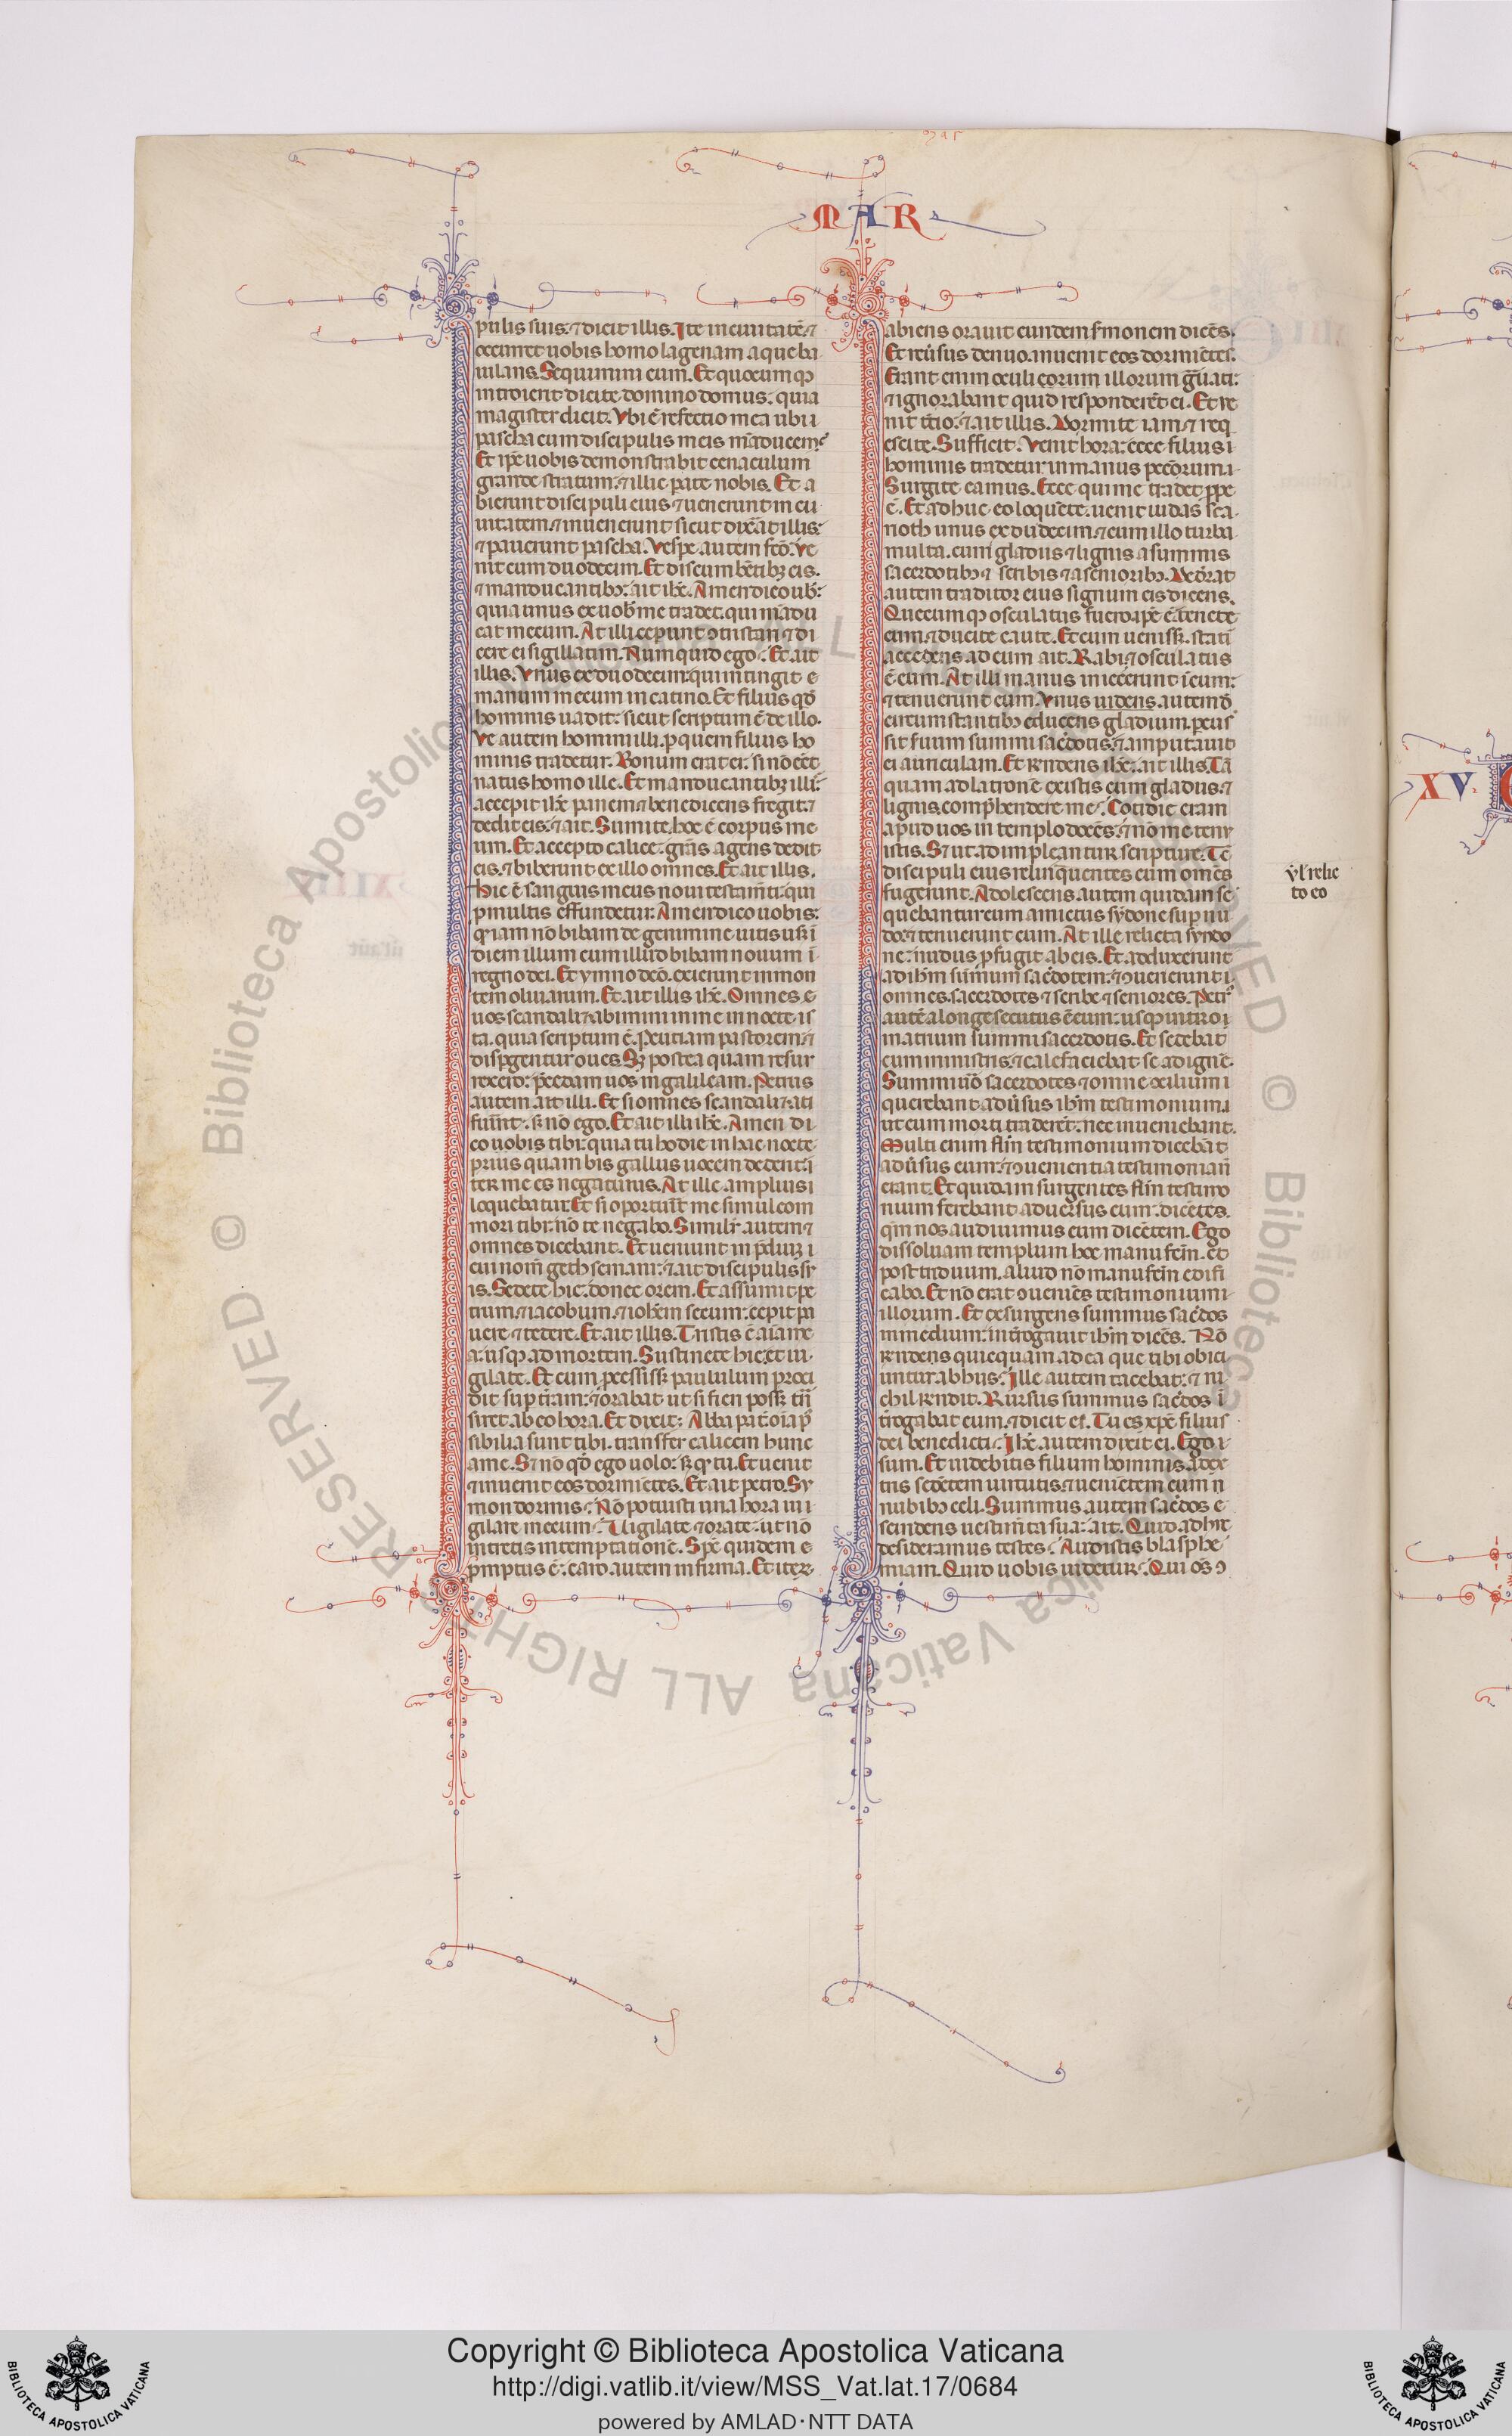 MAR
pulis suis. ⁊ dicit illis. Ite in ciuitatē. ⁊
occurret uobis homo lagenam aque ba
iulans. Sequimini eum. Et quocumq̧
introierit dicite domino domus. quia
magister dicit. Vbi ē refectio mea ubi
pascha cum discipulis meis māducem?
Et ip̄e uobis demonstrabit cenaculum
grande stratum. ⁊ illic parate nobis. Et a
bierunt discipuli eius ⁊ uenerunt in ci
uitatem. ⁊ inuenerunt sicut dixērat illis.
⁊ parauerunt pascha. Vespe autem fc̄o. ue
nit cum duodecim. Et discumbētibꝫ eis.
⁊ manducantibꝫ: ait ihc̄. Amen dico uob̄:
quia unus ex uob̄ me tradet. qui mādu
cat mecum. At illi ceperunt ꝯtristari ⁊ di
cere ei sigillatim. Numquid ego. Et ait
illis. Vnus ex duodecim: qui intingit
manum mecum in catino. Et filius qd̄
hominis uadit: sicut scriptum ē de illo.
Ve autem homini illi. per quem filius ho
minis tradetur. Bonum erat ei: si nō eēt
natus homo ille. Et manducantibꝫ illis:
accepit ihc̄ panem. ⁊ benedicens fregit. ⁊
dedit eis. ⁊ ait. Sumite. hoc ē corpus me
um. Et accepto calice: grās agens dedit
eis. ⁊ biberunt ex illo omnes. Et ait illis.
Hic ē sanguis meus noui testam̄ti: qui
pro multis effundetur. Amen dico uobis:
q̄ iam nō bibam de genimine uitis usq; ī
diem illum cum illud bibam nouum ī
regno dei. Et ymno dc̄o. exierunt in mon
tem oliuarum. Et ait illis ihc̄. Omnes
uos scandalizabimini in me in nocte is
ta. quia scriptum ē. Percutiam pastorem. ⁊
dispergentur oues. Sꝫ postea quam resur
rexero: precedam uos in galileam. Petrus
autem ait illi. Et si omnes scandalizati
fuerīnt: sꝫ nō ego. Et ait illi ihc̄. Amen di
co uobis tibi: quia tu hodie in hac nocte
prius quam bis gallus uocem dederit:
ter me es negaturus. At ille amplius
loquebatur. Et si oportuerīt me simul com
mori tibi: nō te negabo. Similiter autem ⁊
omnes dicebant. Et ueniunt in prediuꝫ
cui nom̄ gethsemani: ⁊ ait discipulis su
is. Sedete hic: donec orem. Et assumit pe
trum. ⁊ iacobum. ⁊ ioh̄em secum: cepit pa
uere ⁊ tedere. Et ait illis. Tristis ē aīa me
a: usq̧ ad mortem. Sustinete hic: et ui
gilate. Et cum processissꝫ paululum proci
dit super terram: ⁊ orabat ut si fieri possꝫ
siret ab eo hora. Et dixit: Abba pater oīa pos
sibilia sunt tibi. transfer calicem hunc
a me. Sꝫ nō qd̄ ego uolo: sꝫ q̄ tu. Et uenit
⁊ inuenit eos dormiētes. Et ait petro. Sy
mon dormis. Nō potuisti una hora ui
gilare mecum. Vigilate ⁊ orate: ut nō
intretis in temptationē. Sp̄s quidem
promptus ē: caro autem infirma. Et iteꝝ
abiens orauit eundem sermonem dicēs.
Et reuersus denuo. inuenit eos dormiētes.
Erant enim oculi eorum illorum grauati:
⁊ ignorabant quid responderēt ei. Et ue
nit tercio: ⁊ ait illis. Dormite iam. ⁊ req
escite. Sufficit. Venit hora: ecce filius
hominis tradetur in manus peccorum.
Surgite eamus. Ecce qui me tradet prope
ē. Et adhuc eo loquēte: uenit iudas sca
rioth unus ex duodecim. ⁊ cum illo turba
multa. cum gladiis ⁊ lignis a summis
sacerdotibꝫ ⁊ scribis ⁊ a senioribꝫ. Dederat
autem traditor eius signum eis dicens.
Quecumq̧ osculatus fuero. ip̄e ē. tenete
eum. ⁊ ducite caute. Et cum uenissꝫ. stati
accedens ad eum ait. Rabi. ⁊ osculatus
ē eum. At illi manus iniecerunt ī eum:
⁊ tenuerunt eum. Vnus uidens autem d̄
circumstantibꝫ educens gladium. percus
sit seruum summi sacerdotis. ⁊ amputauit
ei auriculam. Et rn̄dens ihc̄: ait illis. Tā
quam ad latronē existis cum gladiis. ⁊
lignis. comprehendere me. Cotidie eram
apud uos in templo docēs. ⁊ nō me tenu
istis. Sꝫ ut adimpleantur scripture. Tc̄
discipuli eius relinquentes eum omēs
fugerunt. Adolescens autem quidam se
quebatur eum amictus syndone super nu
do. ⁊ tenuerunt eum. At ille reiecta syndo
ne: nudus profugit ab eis. Et adduxerunt
ad ihm̄ summum sacerdotem: ⁊ ꝯuenerunt
omnes sacerdotes ⁊ scribe ⁊ seniores. Petrꝰ
autē a longe secutus ē eum: usq̧ intro
in atrium summi sacerdotis. Et sedebat
cum ministris. ⁊ calefaciebat se ad ignē.
Summi uō sacerdotes ⁊ omne concilium
querebant aduersus ihm̄ testimonium.
ut eum morti traderēt. nec inueniebant.
Multi enim falsum testimonium dicebāt
aduersus eum: ⁊ ꝯuenientia testimonia nō
erant. Et quidam surgentes falsum testimo
nium ferebant aduersus eum: dicētes.
qm̄ nos audiuimus eum dicētem. Ego
dissoluam templum hoc manu fcm̄. et
post triduum. aliud nō manu fcm̄ edifi
cabo. Et nō erat ꝯueniēs testimonium
illorum. Et exsurgens summus sacerdos
in medium: interrogauit ihm̄ dicēs. Nō
rn̄dens quicquam ad ea que tibi obici
untur ab hiis. Ille autem tacebat: ⁊ ni
chil rn̄dit. Rursus summus sacerdos ī
terrogabat eum. ⁊ dicit ei. Tu es xp̄c filius
dei benedicti. Ihc̄ autem dixit ei. Ego
sum. Et uidebitis filium hominis a dex
tris sedētem uirtutis. ⁊ ueniētem cum
nubibꝫ celi. Summus autem sacerdos
scindens uestimēta sua: ait. Quid adhuc
desideramus testes. Audistis blasphe
miam. Quid uobis uidetur. Qui om̄s ꝯ
ul' reiec
to eo
XV
Copyright © Biblioteca Apostolica Vaticana
http://digi.vatlib.it/view/MSS_Vat.lat.17/0684
powered by AMLAD·NTT DATA
BIBLIOTECA APOSTOLICA VATICANA
BIBLIOTECA APOSTOLICA VATICANA